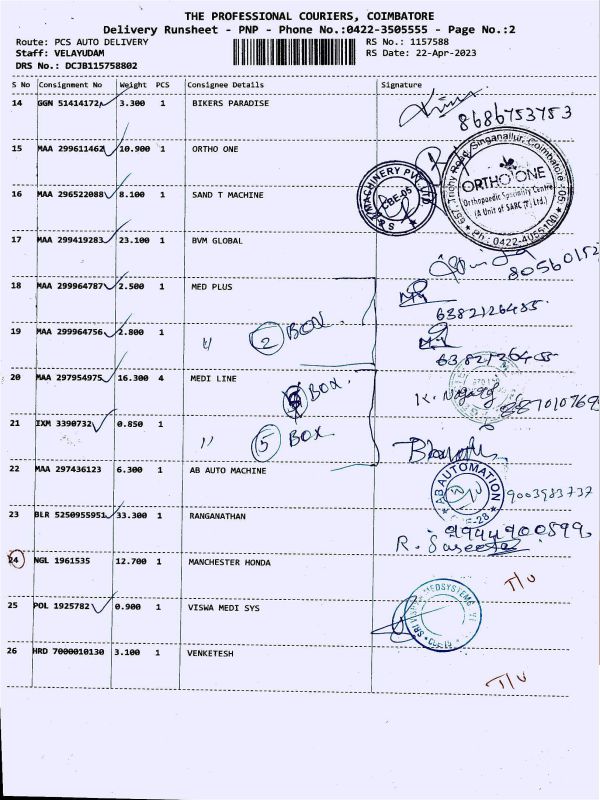 THE PROFESSIONAL COURIERS, COIMBATORE
Delivery Runsheet - PNP - Phone No.:0422-3505555 - Page No.:2
Route: PCS AUTO DELIVERY RS No.: 1157588
Staff: VELAYUDAM RS Date: 22-Apr-2023
DRS No.: DCJB115758802
S No Consignment No Weight PCS Consignee Details Signature
14 GGN 51414172 3.300 1 BIKERS PARADISE
8686753753
15 MAA 299611462 10.900 1 ORTHO ONE
657, Trichy Road, Singanallur, Coimbatore
ORTHO ONE
Orthopaedic Speciality Centre
(A Unit of SARC (P) Ltd.)
PH : 0422-4055100
16 MAA 296522088 8.100 1 SAND T MACHINERY
MACHINERY PVT LTD
CBE-05
17 MAA 299419283 23.100 1 BVM GLOBAL
80560152
18 MAA 299964787 2.500 1 MED PLUS
6382126455
19 MAA 299964756 2.800 1 " 2 BOX
6382126455
20 MAA 297954975 16.300 4 MEDI LINE
BOX
21 IXM 3390732 0.850 1 " 5 BOX
22 MAA 297436123 6.300 1 AB AUTO MACHINE
AB AUTOMATION
9003983737
23 BLR 5250955951 33.300 1 RANGANATHAN
9944900899
24 NGL 1961535 12.700 1 MANCHESTER HONDA
T/U
25 POL 1925782 0.900 1 VISWA MEDI SYS
26 HRD 7000010130 3.100 1 VENKETESH
T/U